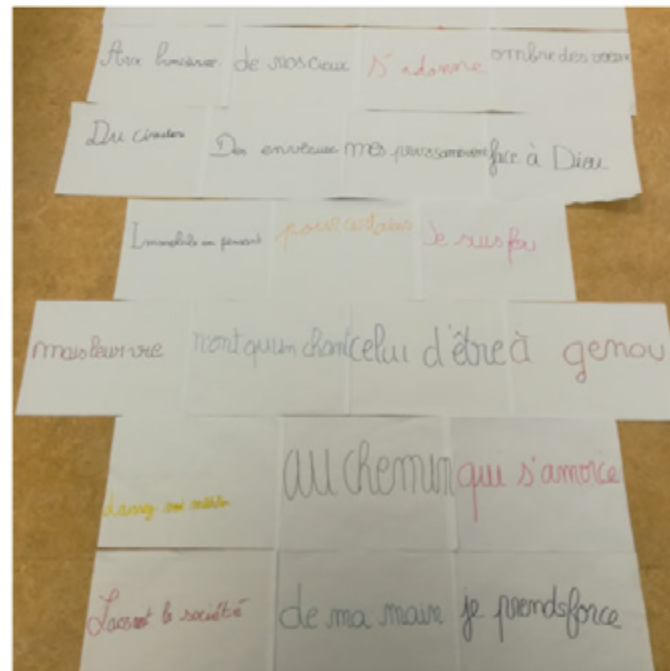 Aux lumières de nos cieux s'adonne ombre des voeux
Du cimetière Des envieux mes puissamment face à Dieu
Immobile en pensant pour certains Je suis fou
mais leur vie n'ont qu'un chant celui d'être à genou
au chemin qui s'amorce
Laissant la société de ma main je prends force